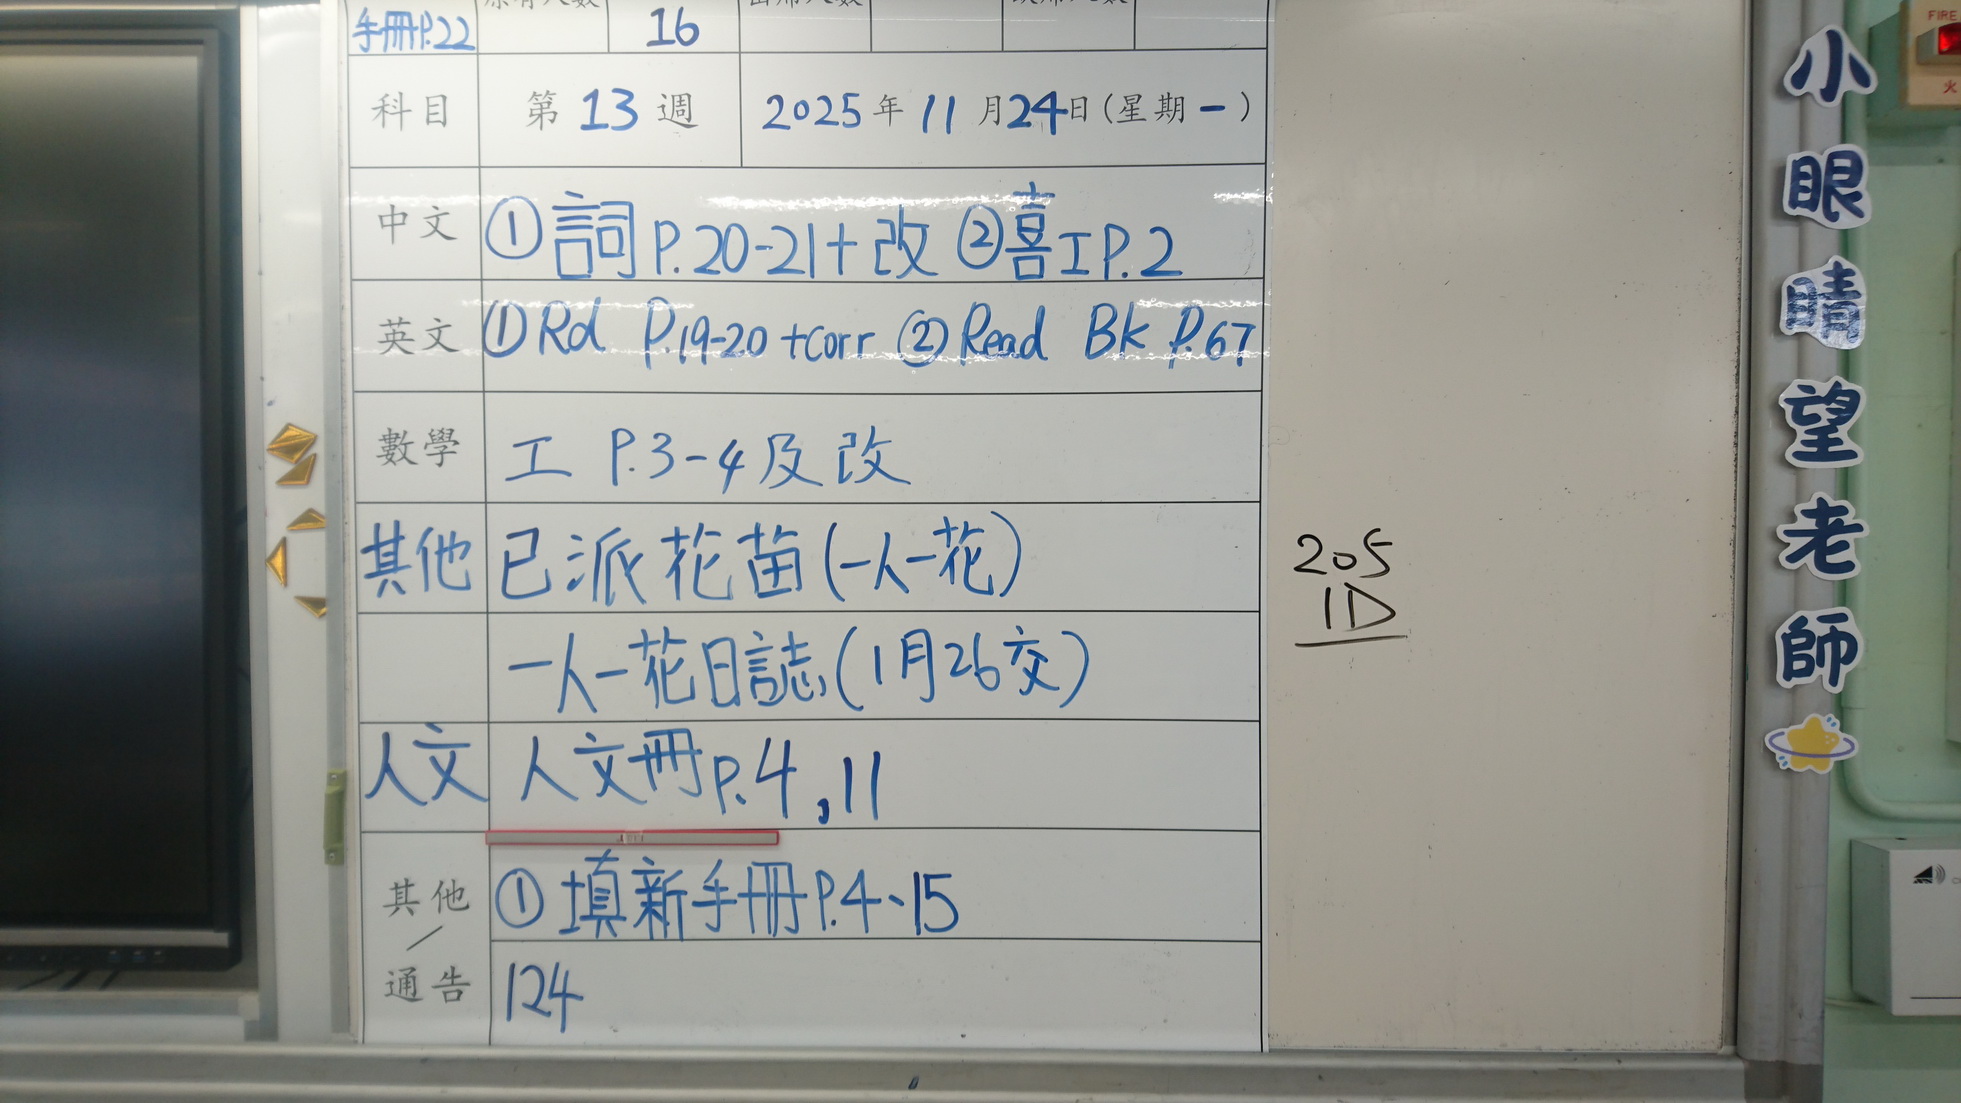 手冊P.22 原有人數 16 出席人數
科目 第13週 2025年11月24日(星期一)
中文 ①詞P.20-21+改 ②喜工P.2
英文 ①Rd P.19-20 +corr ②Read Bk P.67
數學 工 P.3-4及改
其他 已派花苗(一人一花)
一人一花日誌(1月26交)
人文 人文冊P.4,11
其他/通告 ①填新手冊P.4、15
124
205
1D
小眼睛望老師
FIRE
火